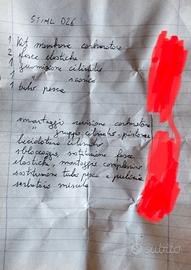 STIHL 026
1 Kit membrane carburatore
2 fasce elastiche
1 guarnizione cilindro
1 " scarico
1 tubo pesca
smontaggio revisione carburatore
" gruppo cilindro, pistone
lucidatura cilindro
sbloccaggio, sostituzione fasce
elastiche, montaggio complessivo
sostituzione tubo pesca e pulizia
serbatoio miscela
subito